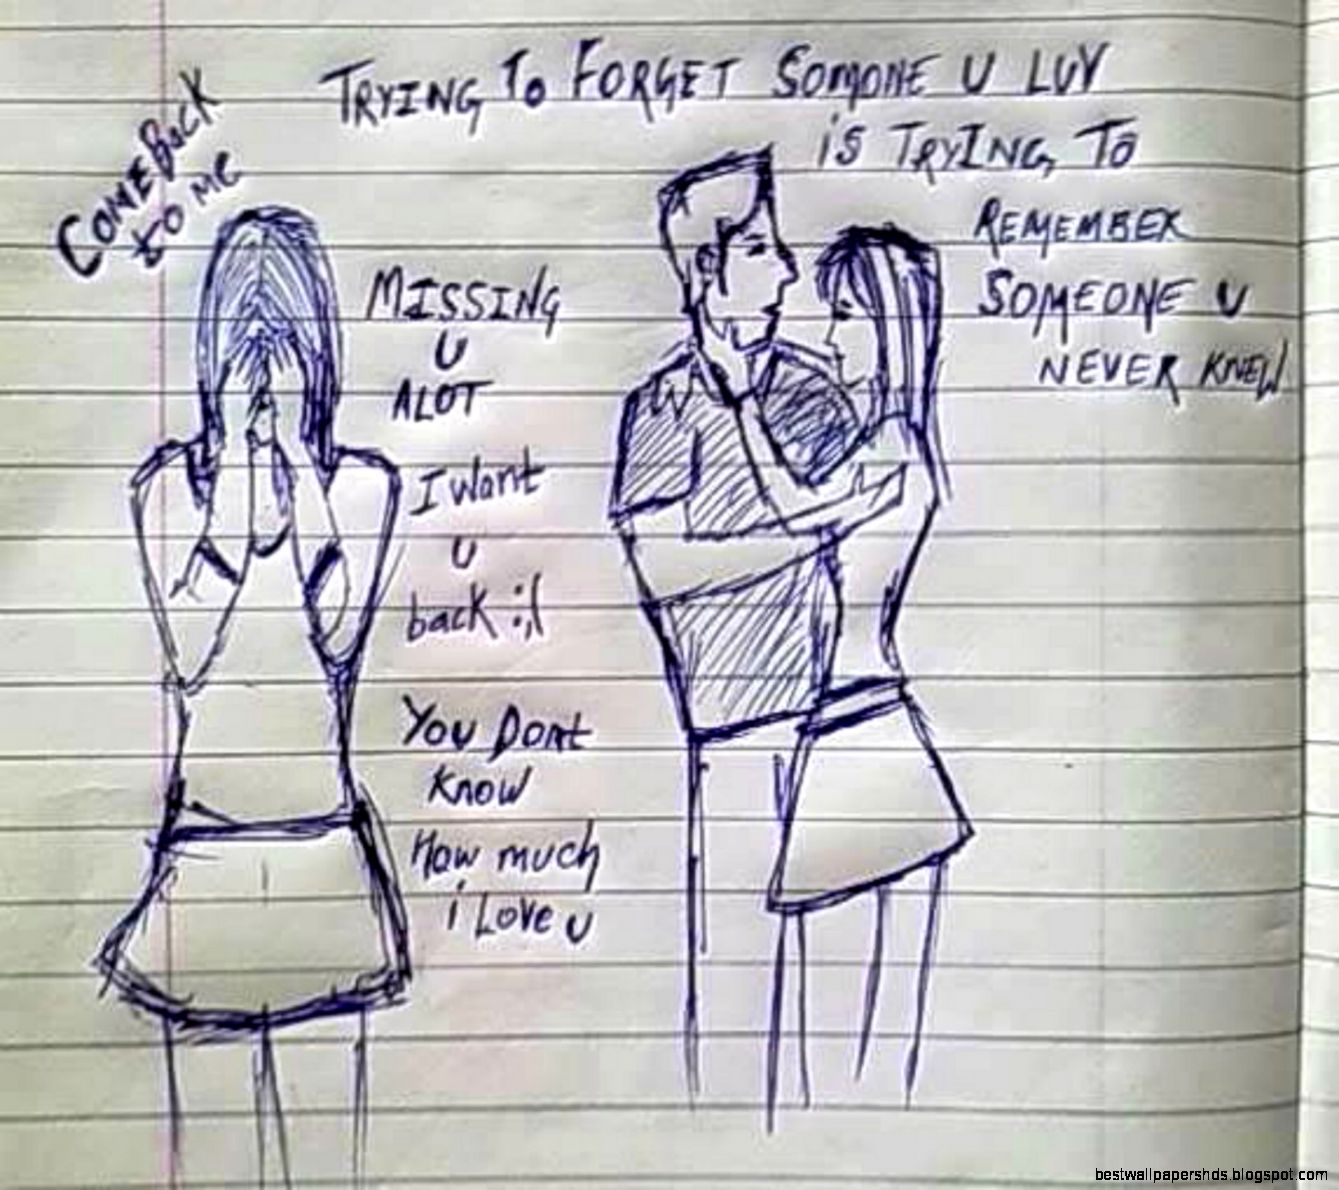 TRYING TO FORGET SOMONE U LUV
IS TRYING TO
REMEMBER
SOMEONE U
NEVER KNEW
COME BACK
to me
MISSING
U
ALOT
I want
U
back :,(
You Dont
Know
How much
i Love u
bestwallpapershds.blogspot.com